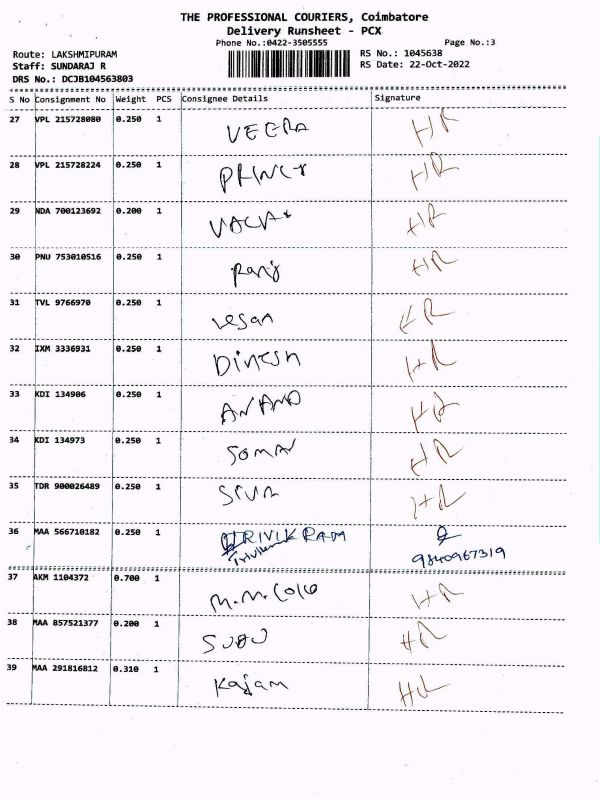 THE PROFESSIONAL COURIERS, Coimbatore
Delivery Runsheet - PCX
Phone No.:0422-3505555 Page No.:3
Route: LAKSHMIPURAM RS No.: 1045638
Staff: SUNDARAJ R RS Date: 22-Oct-2022
DRS No.: DCJB104563803
S No Consignment No Weight PCS Consignee Details Signature
27 VPL 215728080 0.250 1 VEERA HR
28 VPL 215728224 0.250 1 HR
29 NDA 700123692 0.200 1 HR
30 PNU 753010516 0.250 1 Ranj HR
31 TVL 9766970 0.250 1 vesan HR
32 IXM 3336931 0.250 1 DINESH HR
33 KDI 134906 0.250 1 ANAND HR
34 KDI 134973 0.250 1 SOMAN HR
35 TDR 900026489 0.250 1 SIVA HR
36 MAA 566710182 0.250 1 TRIVIKRAM
9840967319
37 AKM 1104372 0.700 1 M.M. HR
38 MAA 857521377 0.200 1 SUBU HR
39 MAA 291816812 0.310 1 Kajam HR